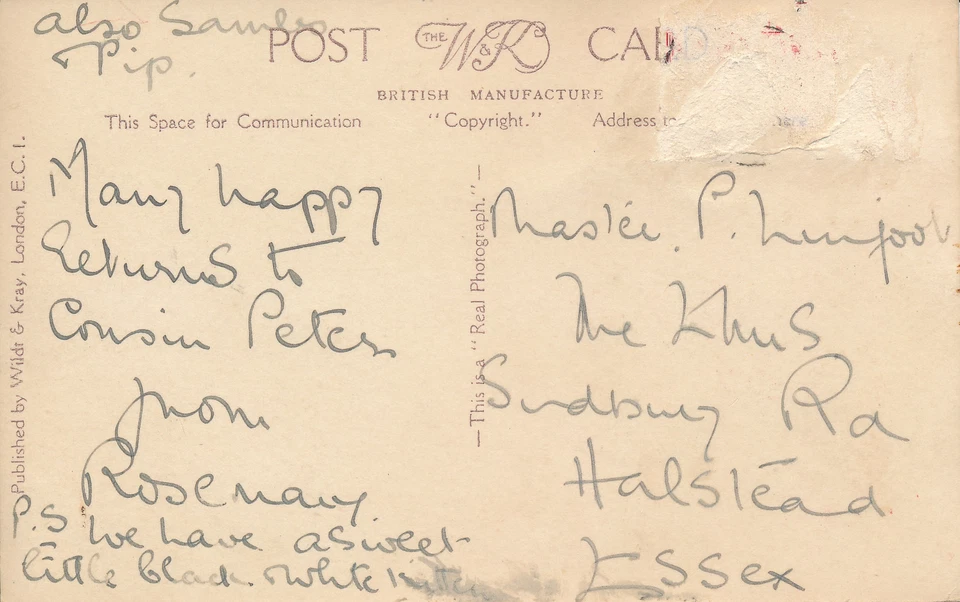 also Sambo
Pip.
POST THE W&K CARD
BRITISH MANUFACTURE
This Space for Communication
"Copyright."
Address to
Many happy
Returns to
Cousin Peter
from
Rosemary
P.S We have a sweet
little black & white kitten
Published by Wildt & Kray, London, E.C.1.
—This is a "Real Photograph."—
Master. P.
The Elms
Sudbury Rd
Halstead
Essex